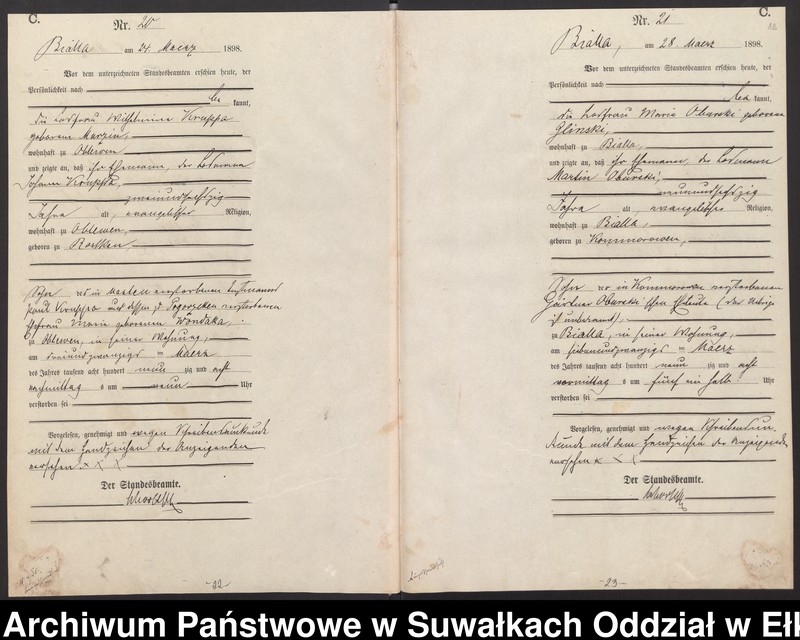 C.
Nr. 20
Bialla am 24. Maerz 1898.
Vor dem unterzeichneten Standesbeamten erschien heute, der
Persönlichkeit nach
be kannt,
die Losfrau Wilhelmine Kruppa
geborene
wohnhaft zu Oblewen
und zeigte an, daß ihr Ehemann, der Losmann
Johann Kruppa,
zweiundsechszig
Jahre alt, evangelischer Religion,
wohnhaft zu Oblewen,
geboren zu
Sohn des in verstorbenen
Paul Kruppa und dessen zu verstorbenen
Ehefrau Marie geborenen
zu Oblewen, in seiner Wohnung,
am dreiundzwanzigsten Maerz
des Jahres tausend acht hundert neun zig und acht
nachmittag s um neun Uhr
verstorben sei
Vorgelesen, genehmigt und wegen Schreibensunkunde
mit dem Handzeichen der Anzeigenden
versehen x x x
Der Standesbeamte.
-22-
C.
Nr. 21
Bialla, am 28. Maerz 1898.
Vor dem unterzeichneten Standesbeamten erschien heute, der
Persönlichkeit nach
be kannt,
die Losfrau Marie Oburski geborene
Glinski,
wohnhaft zu Bialla,
und zeigte an, daß ihr Ehemann, der Losmann
Martin Oburski,
neunundsechszig
Jahre alt, evangelischer Religion,
wohnhaft zu Bialla,
geboren zu Kommorowen,
Sohn der in Kommorowen verstorbenen
Gärtner Oburski'schen Eheleute (das Uebrige
ist unbekannt).
zu Bialla, in seiner Wohnung,
am siebenundzwanzigsten Maerz
des Jahres tausend acht hundert neun zig und acht
vormittag s um fünf ein halb Uhr
verstorben sei
Vorgelesen, genehmigt und wegen Schreibensun-
kunde mit dem Handzeichen der Anzeigenden
versehen x x x
Der Standesbeamte.
-23-
Archiwum Państwowe w Suwałkach Oddział w Eł